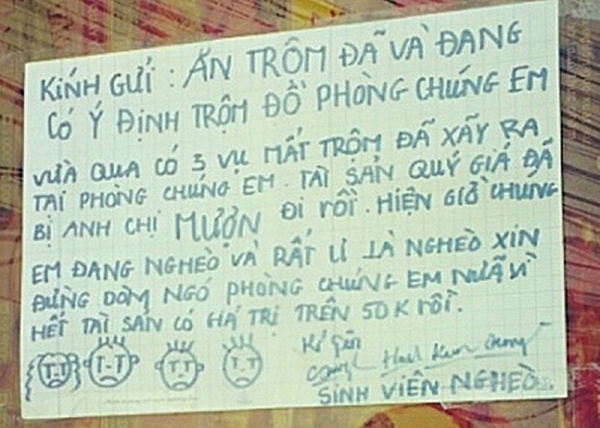 KÍNH GỬI : ĂN TRỘM ĐÃ VÀ ĐANG
CÓ Ý ĐỊNH TRỘM ĐỒ PHÒNG CHÚNG EM
VỪA QUA CÓ 3 VỤ MẤT TRỘM ĐÃ XÃY RA
TẠI PHÒNG CHÚNG EM. TÀI SẢN QUÝ GIÁ ĐÃ
BỊ ANH CHỊ MƯỢN ĐI RỒI. HIỆN GIỜ CHÚNG
EM ĐANG NGHÈO VÀ RẤT LÀ NGHÈO XIN
ĐỪNG DÒM NGÓ PHÒNG CHÚNG EM NỮA VÌ
HẾT TÀI SẢN CÓ GIÁ TRỊ TRÊN 50K RỒI.
T-T T-T T-T T-T
SINH VIÊN NGHÈO